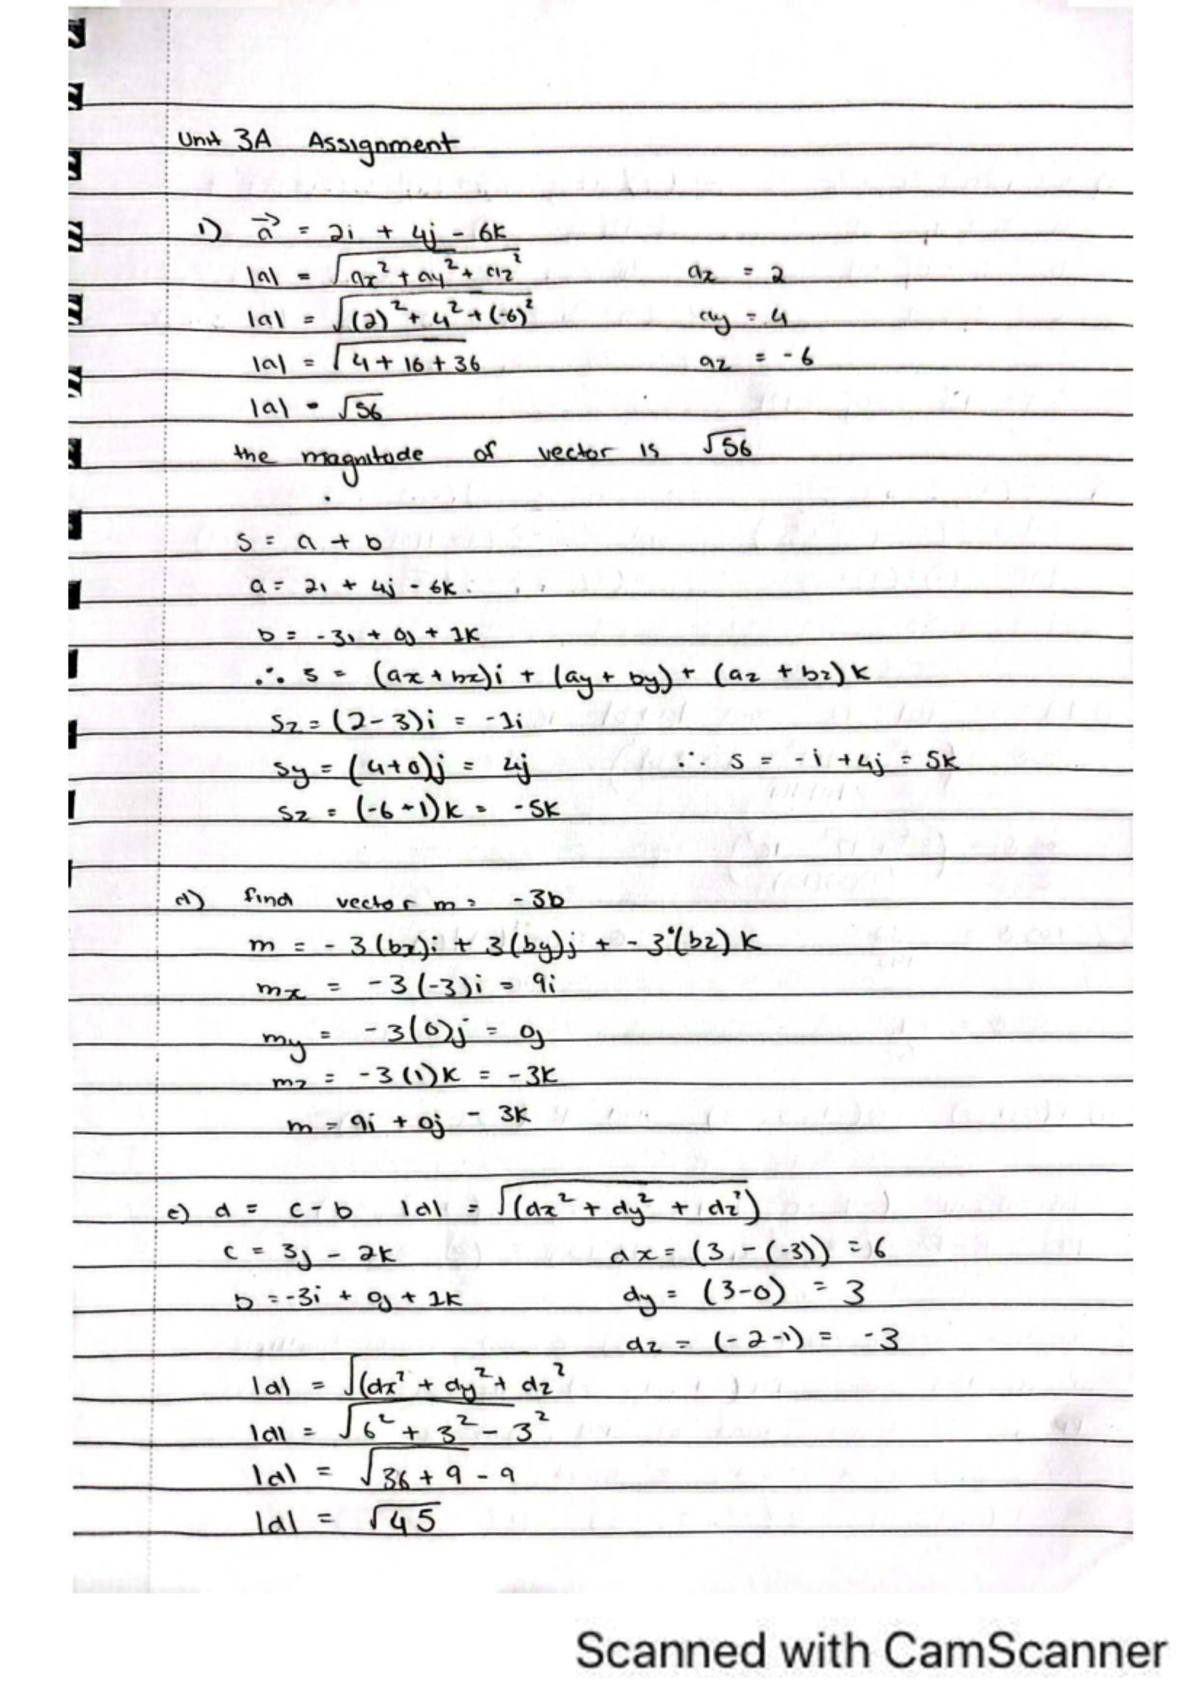 Unit 3A Assignment
1) a⃗ = 2i + 4j - 6k
|a| = √(ax² + ay² + az²) az = 2
|a| = √((2)² + 4² + (-6)²) ay = 4
|a| = √(4 + 16 + 36) az = -6
|a| = √56
the magnitude of vector is √56
S = a + b
a = 2i + 4j - 6k
b = -3i + 0j + 1k
∴ s = (ax + bx)i + (ay + by) + (az + bz)k
Sz = (2-3)i = -1i
Sy = (4+0)j = 4j ∴ s = -i + 4j = 5k
Sz = (-6+1)k = -5k
d) find vector m = -3b
m = -3(bx)i + 3(by)j + -3(bz)k
mx = -3(-3)i = 9i
my = -3(0)j = 0j
mz = -3(1)k = -3k
m = 9i + 0j - 3k
e) d = c-b |d| = √(dx² + dy² + dz²)
c = 3j - 2k dx = (3-(-3)) = 6
b = -3i + 0j + 1k dy = (3-0) = 3
dz = (-2-1) = -3
|d| = √(dx² + dy² + dz²
|d| = √6² + 3² - 3²
|d| = √36 + 9 - 9
|d| = √45
Scanned with CamScanner